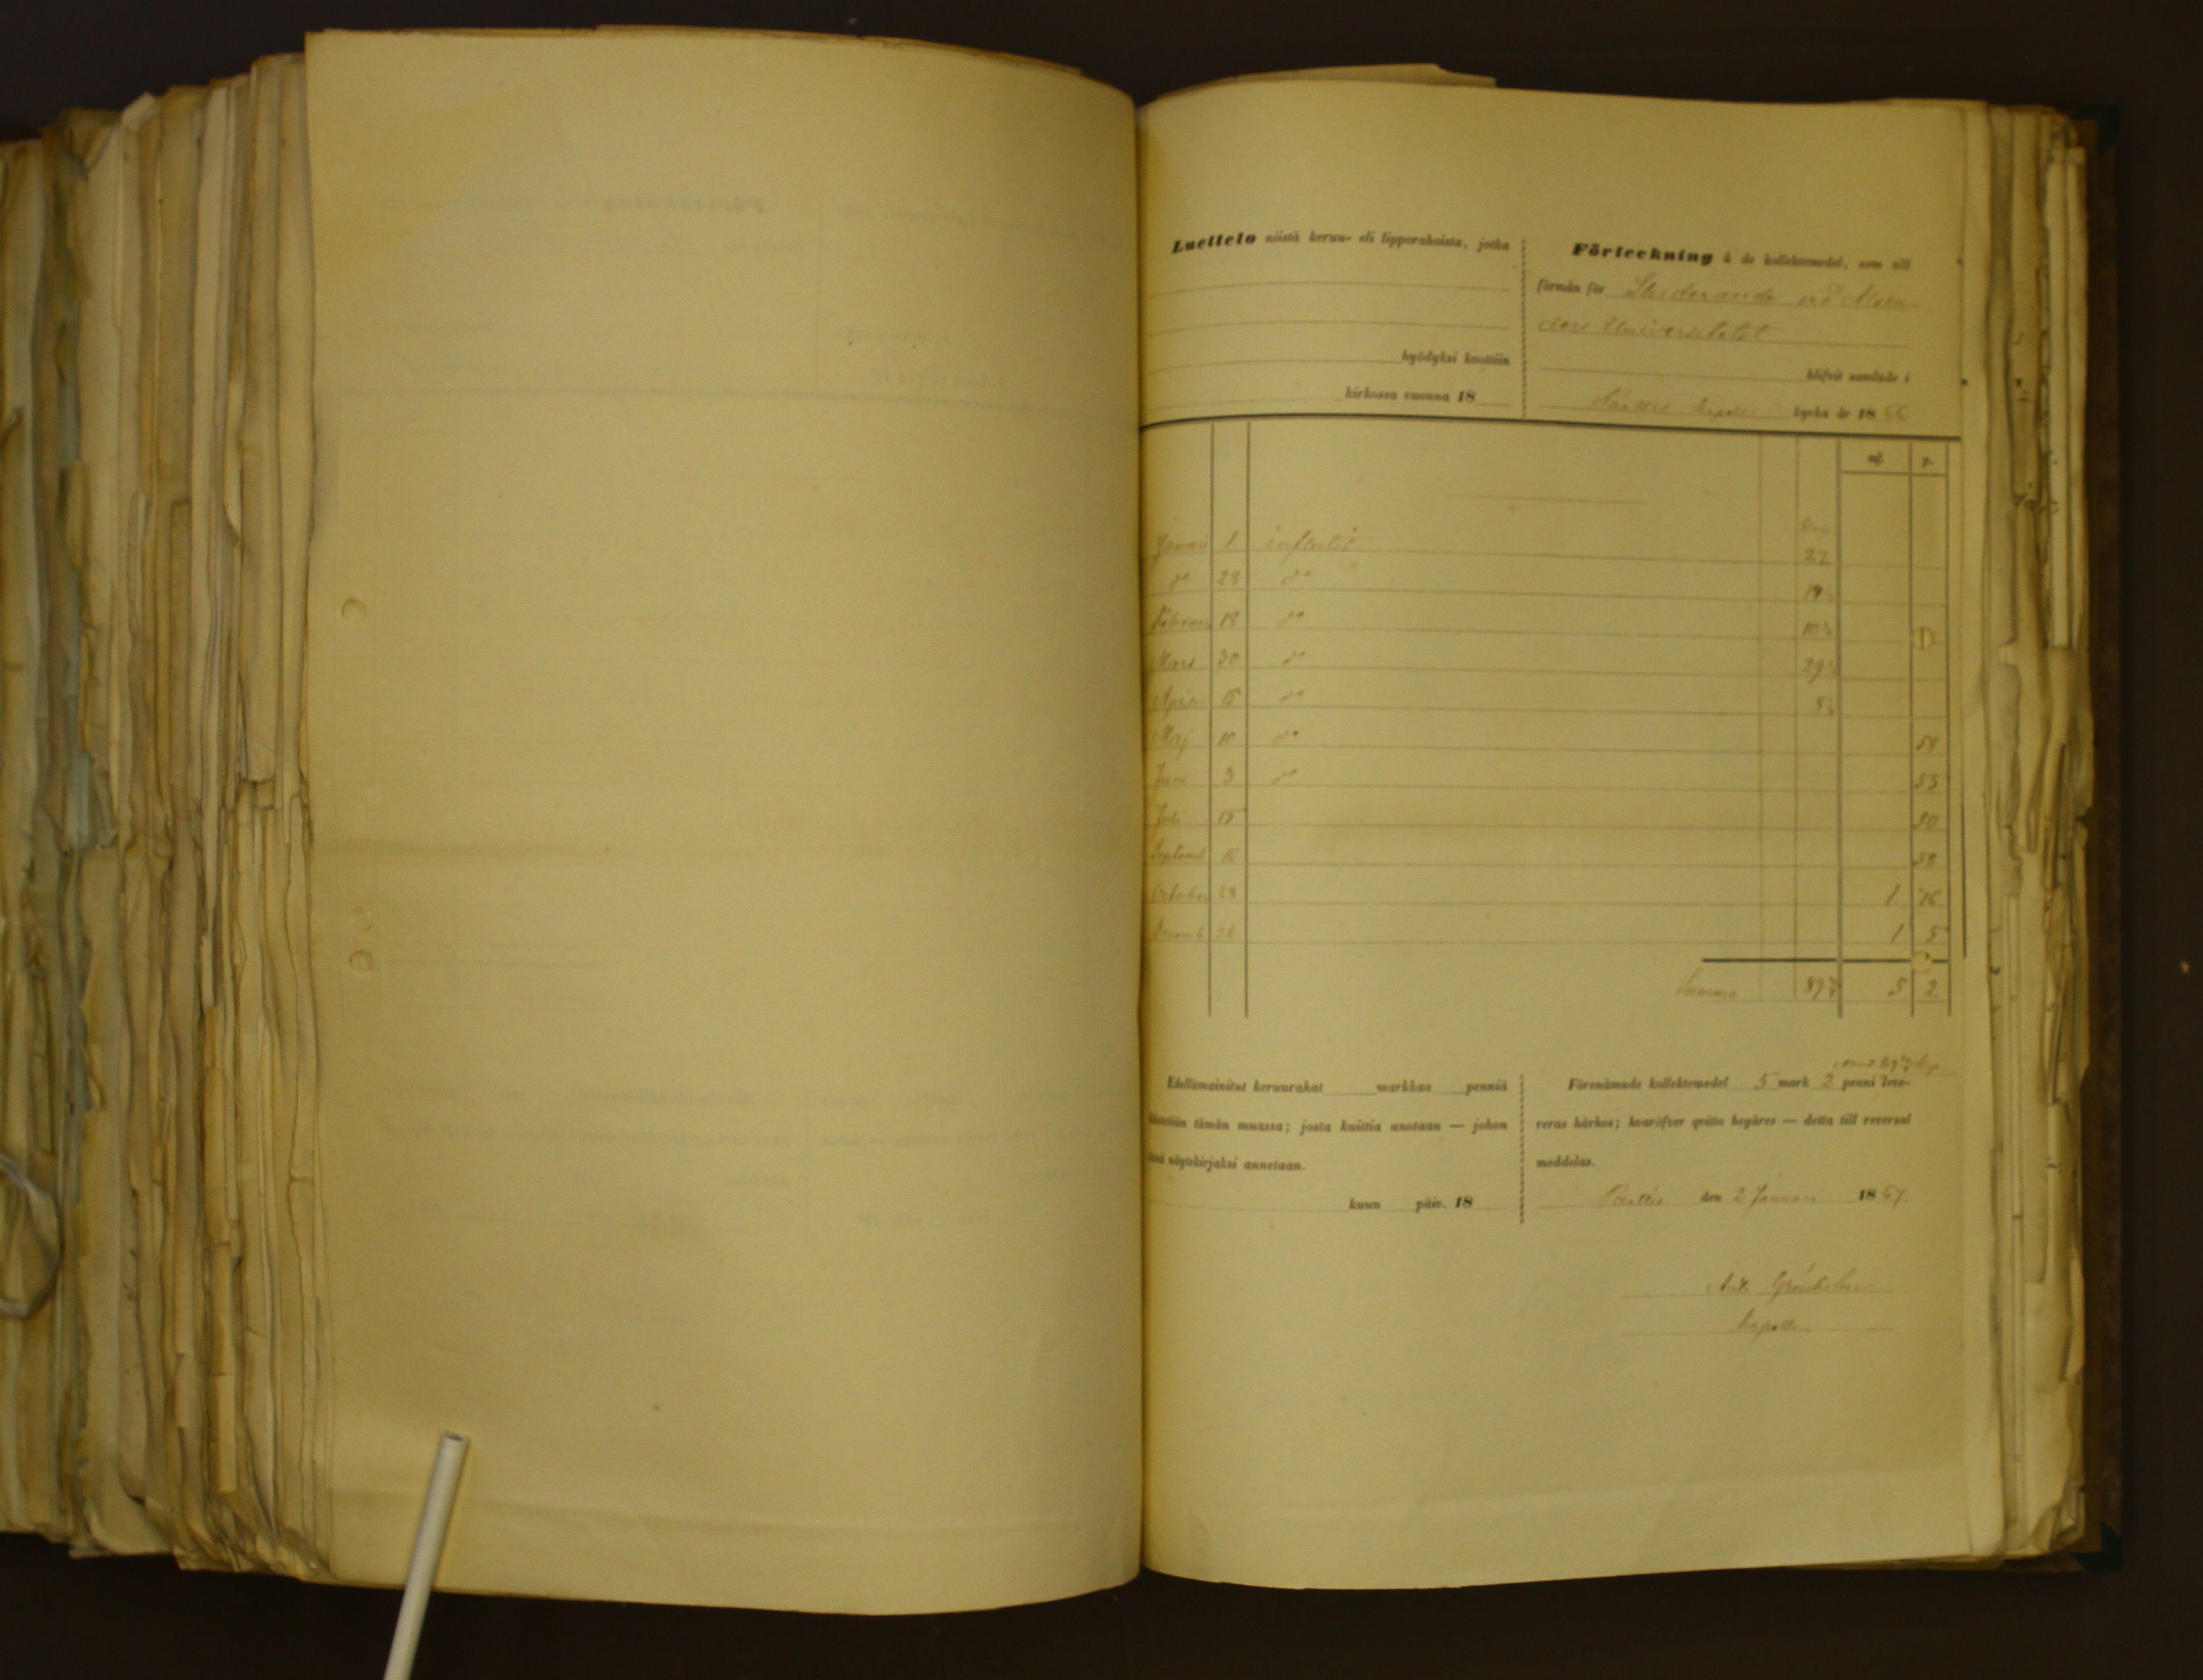 Luettelo niistä keruu- eli lipporahoista, jotka
hyödyksi koottiin
kirkossa vuonna 18
Förteckning å de kollektemedel, som till
förmån för Studerande vid Alexan
ders Universitetet
blifvit samlade i
kapell kyrka år 1866
mk. p.
Kop.
Januari 1. influtit 27
do 28 do 14
Februari 18 do 10
Mars 30 do 29
Aprill 15 do 8
Maj 10 do 58
Juni 3 do 55
Juli 15 50
Septemb 16 58
October 28 1. 76
Decemb 26. 1 5
Summa 89 5 2.
Edellämainitut keruurahat markkaa penniä
lähetetään tämän muassa; josta kuittia anotaan — johon
tämä näytekirjaksi annetaan.
kuun päiv. 18
Förenämnde kollektemedel 5 mark 2 penni leve-
reras härhos; hvaröfver qvitto begäres — detta till reversal
meddelas.
Pattis den 2 Januari 1867.
Grönholm
kapell